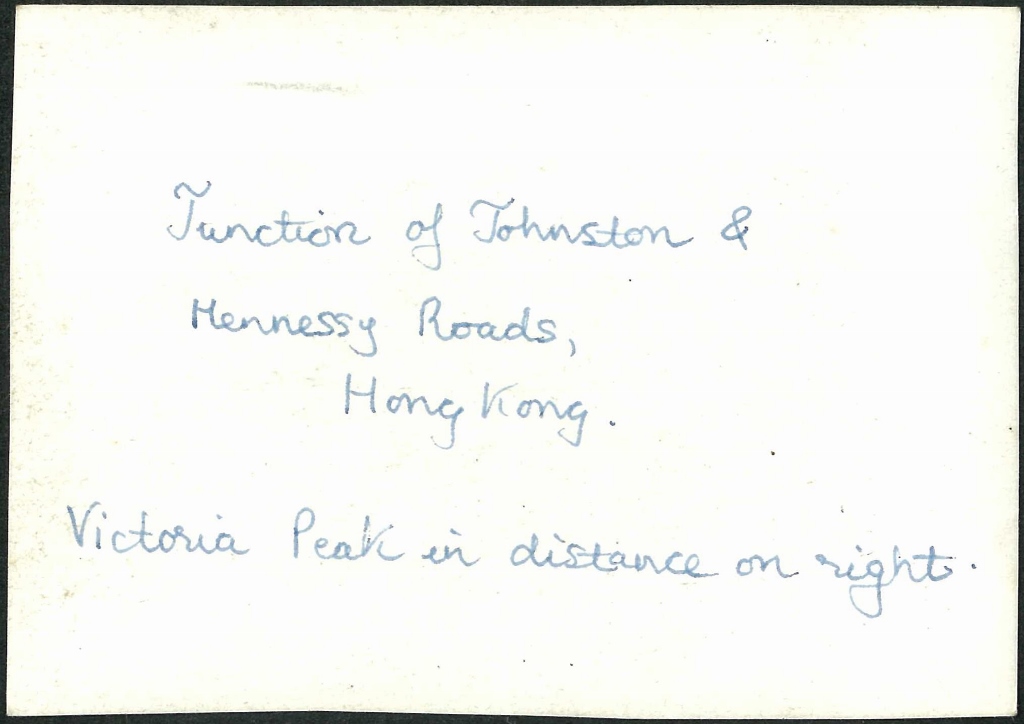 Junction of Johnston &
Hennessy Roads,
Hong Kong.
Victoria Peak in distance on right.